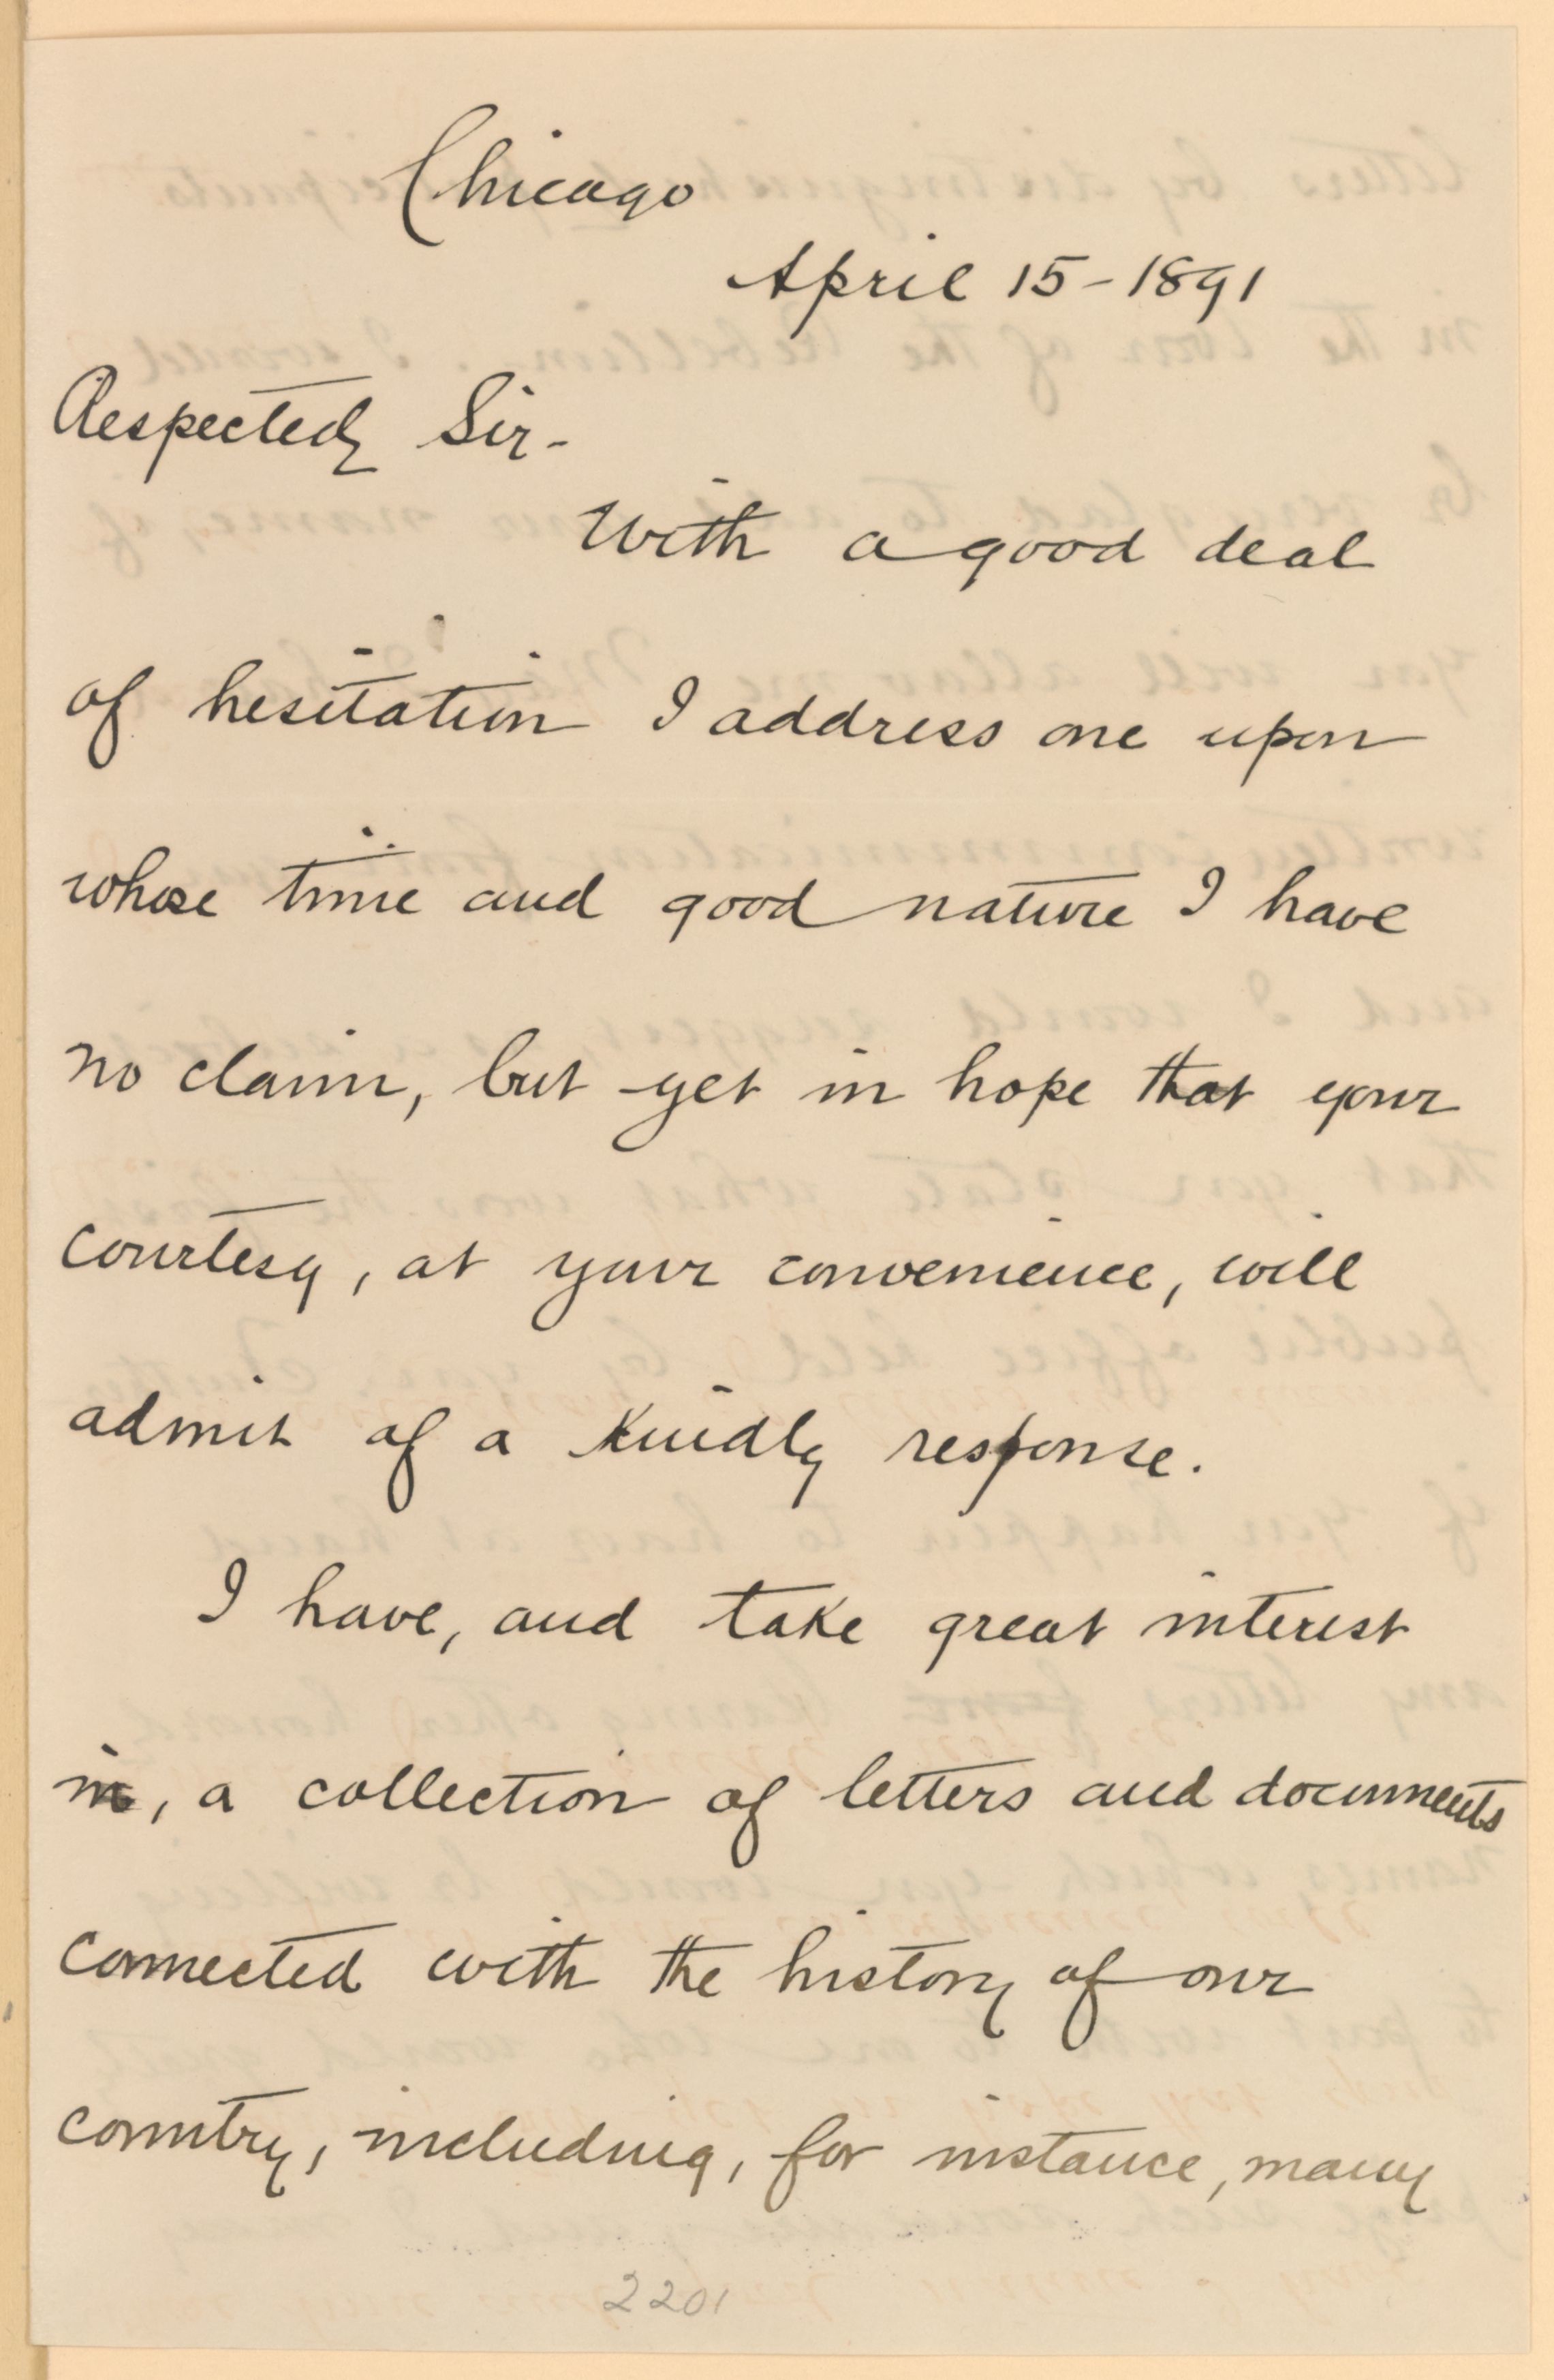 Chicago
April 15-1891
Respected Sir-
With a good deal
of hesitation I address one upon
whose time and good nature I have
no claim, but yet in hope that your
courtesy, at your convenience, will
admit of a kindly response.
I have, and take great interest
in, a collection of letters and documents
connected with the history of our
country, including, for instance, many
2201